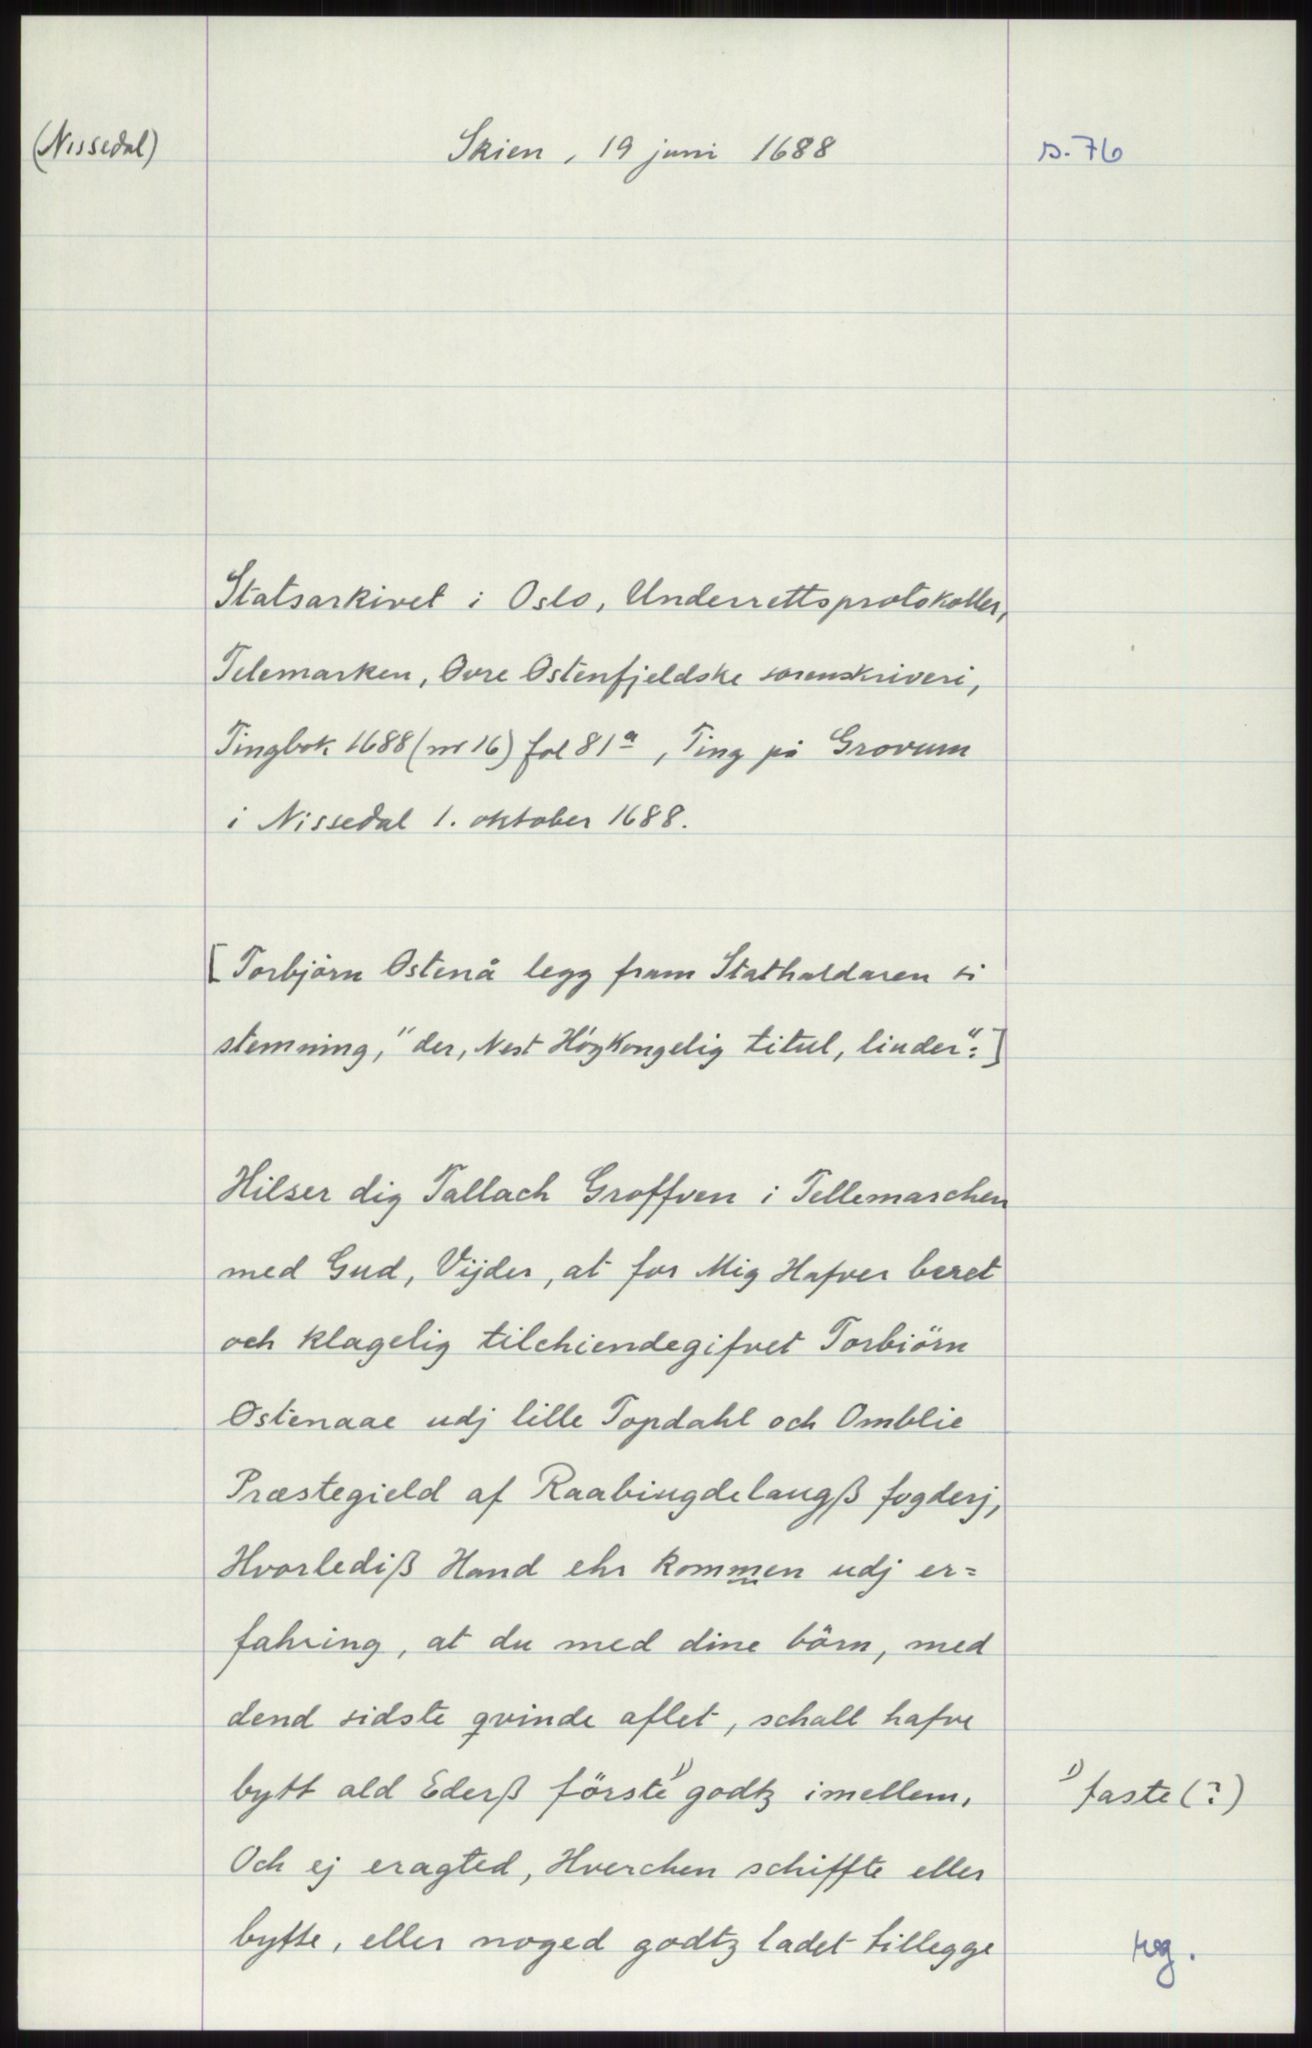 (Nissedal)
Skien, 19 juni 1688
s. 76
Statsarkivet i Oslo, Underrettsprotokoller,
Telemarken, Øvre Østenfjeldske sorenskriveri,
Tingbok 1688 (nr 16) fol 81a, Ting på Grovum
i Nissedal 1. oktober 1688.
[Torbjörn Østenå legg fram Stathaldaren si
stemning, "der, Nest Höykongelig titul, linder":]
Hilser dig Tallach Groffven i Tellemarchen
med Gud, Vijder, at for Mig Hafver beret
och klagelig tilchiendegifvet Torbiörn
Østenaae udj lille Topdahl och Omblie
Præstegield af Raabingdelaugß fogderj,
Hvorlediß Hand ehr kommen udj er=
fahring, at du med dine börn, med
dend sidste qvinde aflet, schall hafve
bytt ald Ederß förste¹⁾ godtz imellem,
¹⁾ faste (?)
Och ej eragted, Hverchen schiffte eller
bytte, eller noged godtz ladet tillegge
reg.